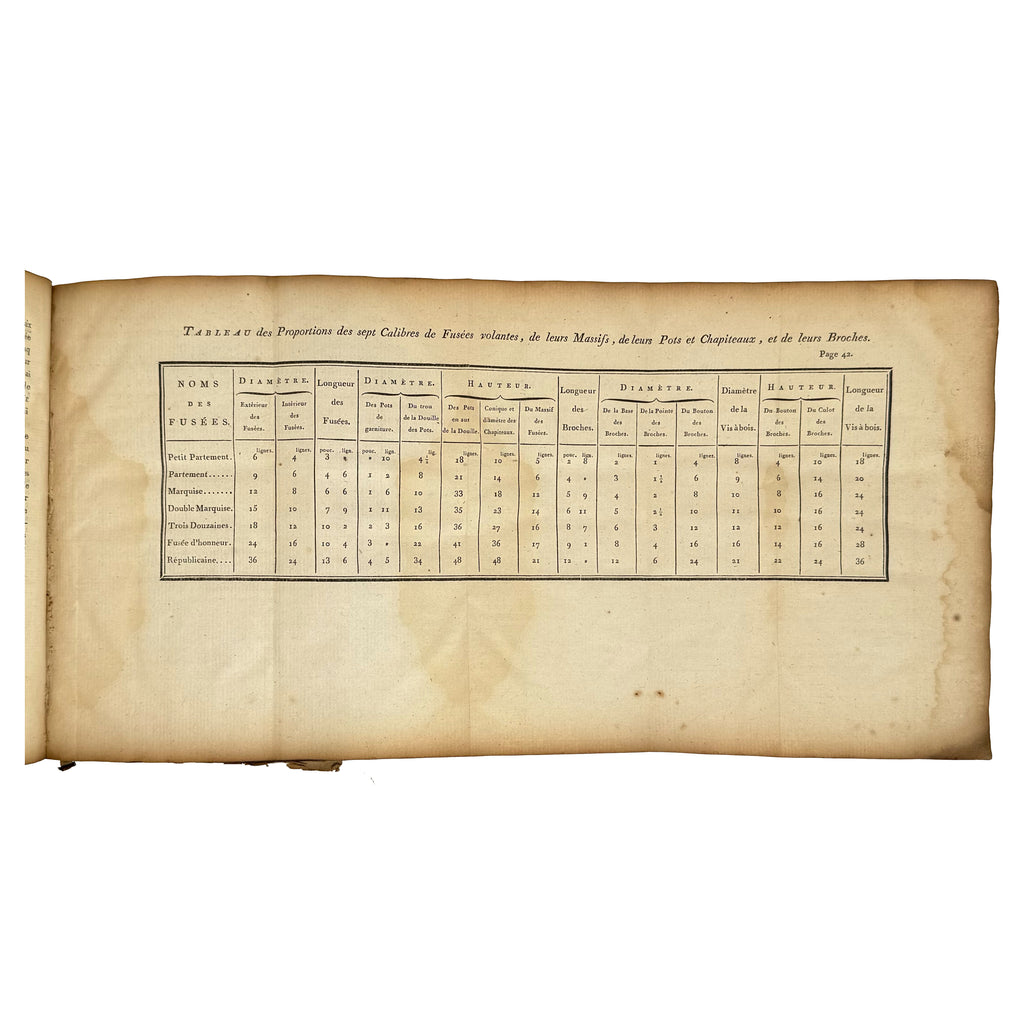 TABLEAU des Proportions des sept Calibres de Fusées volantes, de leurs Massifs, de leurs Pots et Chapiteaux, et de leurs Broches.
Page 42.
NOMS DES FUSÉES. DIAMÈTRE. Longueur des Fusées. DIAMÈTRE. HAUTEUR. Longueur des Broches. DIAMÈTRE. Diamètre de la Vis à bois. HAUTEUR. Longueur de la Vis à bois.
Extérieur des Fusées. Intérieur des Fusées. Des Pots de garniture. Du trou de la Douille des Pots. Des Pots en sus de la Douille. Conique et diamètre des Chapiteaux. Du Massif des Fusées. De la Base des Broches. De la Pointe des Broches. Du Bouton des Broches. Du Bouton des Broches. Du Culot des Broches.
lignes. lignes. pouc. lign. pouc. lign. lig. lignes. lignes. lignes. pouc. lig. lignes. lignes. lignes. lignes. lignes. lignes. lignes.
Petit Partement. 6 4 3 " " 10 4 ½ 18 10 5 2 8 2 1 4 8 4 10 18
Partement...... 9 6 4 6 1 2 8 21 14 6 4 " 3 1 ½ 6 9 6 14 20
Marquise....... 12 8 6 6 1 6 10 33 18 12 5 9 4 2 8 10 8 16 24
Double Marquise. 15 10 7 9 1 11 13 35 23 14 6 11 5 2 ½ 10 11 10 16 24
Trois Douzaines. 18 12 10 2 2 3 16 36 27 16 8 7 6 3 12 12 12 16 24
Fusée d'honneur. 24 16 10 4 3 " 22 41 36 17 9 1 8 4 16 16 14 16 28
Républicaine.... 36 24 13 6 4 5 34 48 48 21 12 " 12 6 24 21 22 24 36